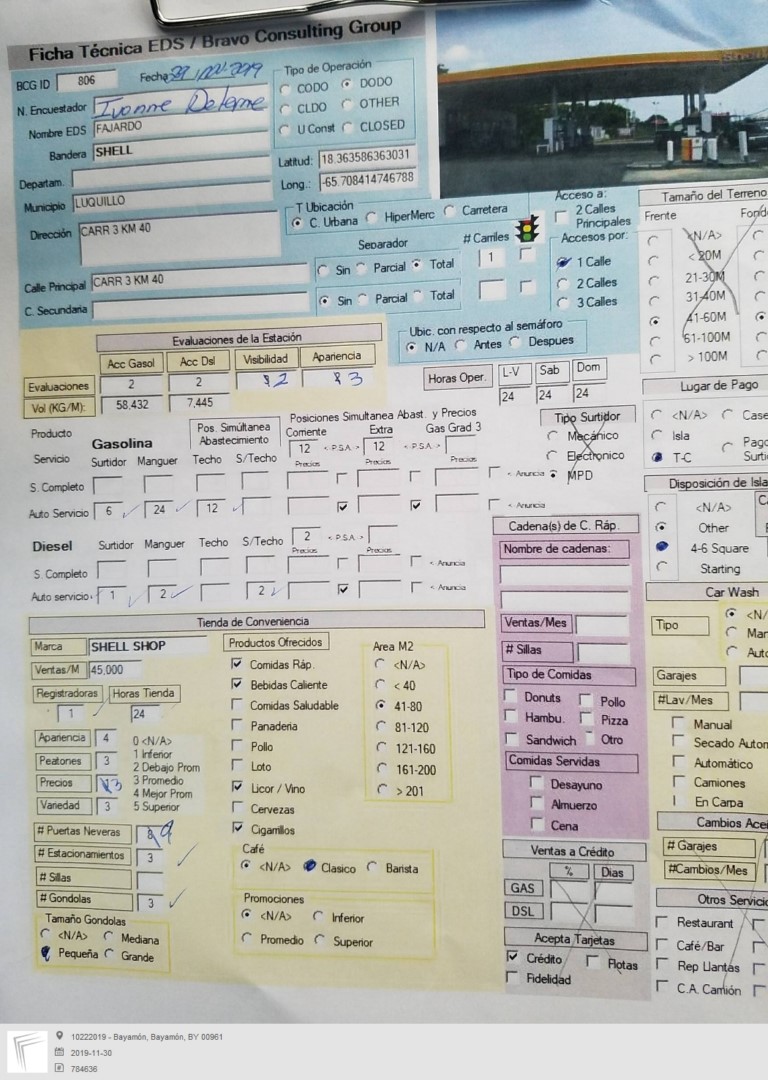 Ficha Técnica EDS / Bravo Consulting Group
BCG ID 806 Fecha
N. Encuestador Ivonne
Nombre EDS FAJARDO
Bandera SHELL
Departam.
Municipio LUQUILLO
Dirección CARR 3 KM 40
Calle Principal CARR 3 KM 40
C. Secundaria
Tipo de Operación
CODO DODO
CLDO OTHER
U Const CLOSED
Latitud: 18.363586363031
Long.: -65.708414746788
T Ubicación
C. Urbana HiperMerc Carretera
Separador # Carriles
Sin Parcial Total 1
Sin Parcial Total
Acceso a:
2 Calles Principales
Accesos por:
1 Calle
2 Calles
3 Calles
Ubic. con respecto al semáforo
N/A Antes Despues
Tamaño del Terreno
Frente
<N/A>
< 20M
21-30M
31-40M
41-60M
61-100M
> 100M
Evaluaciones de la Estación
Acc Gasol Acc Dsl Visibilidad Apariencia
Evaluaciones 2 2 2 3
Vol (KG/M): 58,432 7,445
Horas Oper. L-V Sab Dom
24 24 24
Lugar de Pago
<N/A>
Isla
T-C
Producto Gasolina Pos. Simúltánea Abastecimiento
Posiciones Simultanea Abast. y Precios
Corriente Extra Gas Grad 3
12 <-P.S.A-> 12 <-P.S.A->
Precios Precios Precios
Servicio Surtidor Manguer Techo S/Techo
S. Completo <- Anuncia
Auto Servicio 6 24 12 <- Anuncia
Tipo Surtidor
Mecánico
Electronico
MPD
Disposición de Isla
<N/A>
Other
4-6 Square
Starting
Diesel Surtidor Manguer Techo S/Techo 2 <-P.S.A->
Precios Precios
S. Completo < - Anuncia
Auto servicio 1 2 2 < - Anuncia
Cadena(s) de C. Ráp.
Nombre de cadenas:
Ventas/Mes
# Sillas
Tipo de Comidas
Donuts Pollo
Hambu. Pizza
Sandwich Otro
Comidas Servidas
Desayuno
Almuerzo
Cena
Car Wash
Tipo <N/
Garajes
#Lav/Mes
Manual
Automático
Camiones
En Carpa
Tienda de Conveniencia
Marca SHELL SHOP
Ventas/M 45,000
Registradoras Horas Tienda
1 24
Apariencia 4
Peatones 3
Precios 3
Variedad 3
0 <N/A>
1 Inferior
2 Debajo Prom
3 Promedio
4 Mejor Prom
5 Superior
# Puertas Neveras 8 9
# Estacionamientos 3
# Sillas
# Gondolas 3
Tamaño Gondolas
<N/A> Mediana
Pequeña Grande
Productos Ofrecidos
Comidas Ráp.
Bebidas Caliente
Comidas Saludable
Panaderia
Pollo
Loto
Licor / Vino
Cervezas
Cigarrillos
Area M2
<N/A>
< 40
41-80
81-120
121-160
161-200
> 201
Café
<N/A> Clasico Barista
Promociones
<N/A> Inferior
Promedio Superior
Ventas a Crédito
% Dias
GAS
DSL
Acepta Tarjetas
Crédito Flotas
Fidelidad
# Garajes
#Cambios/Mes
Restaurant
Café/Bar
Rep Llantas
C.A. Camión
10222019 - Bayamón, Bayamón, BY 00961
2019-11-30
784636